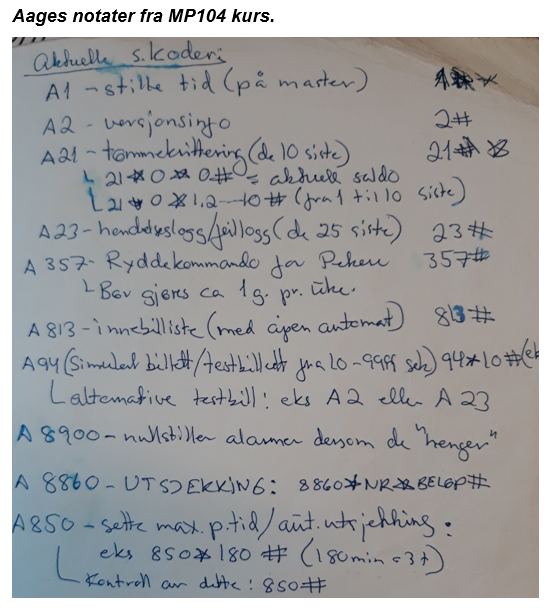 Aages notater fra MP104 kurs.
Aktuelle s.koder:
A1 - stille tid (på master)
A2 - versjonsinfo 2#
A21 - tømmekvittering (de 10 siste) 21#
21*0*0# = aktuell saldo
21*0*1,2-10# (fra 1 til 10 siste)
A23 - hendelseslogg/feillogg (de 25 siste) 23#
A 357 - Ryddekommando for Peken 357#
Bør gjøres ca 1 g. pr. uke.
A 813 - innebilliste (med åpen automat) 813#
A94 (Simulert billett/testbillett fra 10-9999 sek) 94*10#
alternative testbill: eks A2 eller A 23
A 8900 - nullstiller alarmer dersom de "henger"
A 8860 - UTSJEKKING: 8860*NR*BELØP#
A850 - sette max. p.tid/aut. utsjekking:
eks 850*180 # (180 min = 3t)
Kontroll av dette: 850#